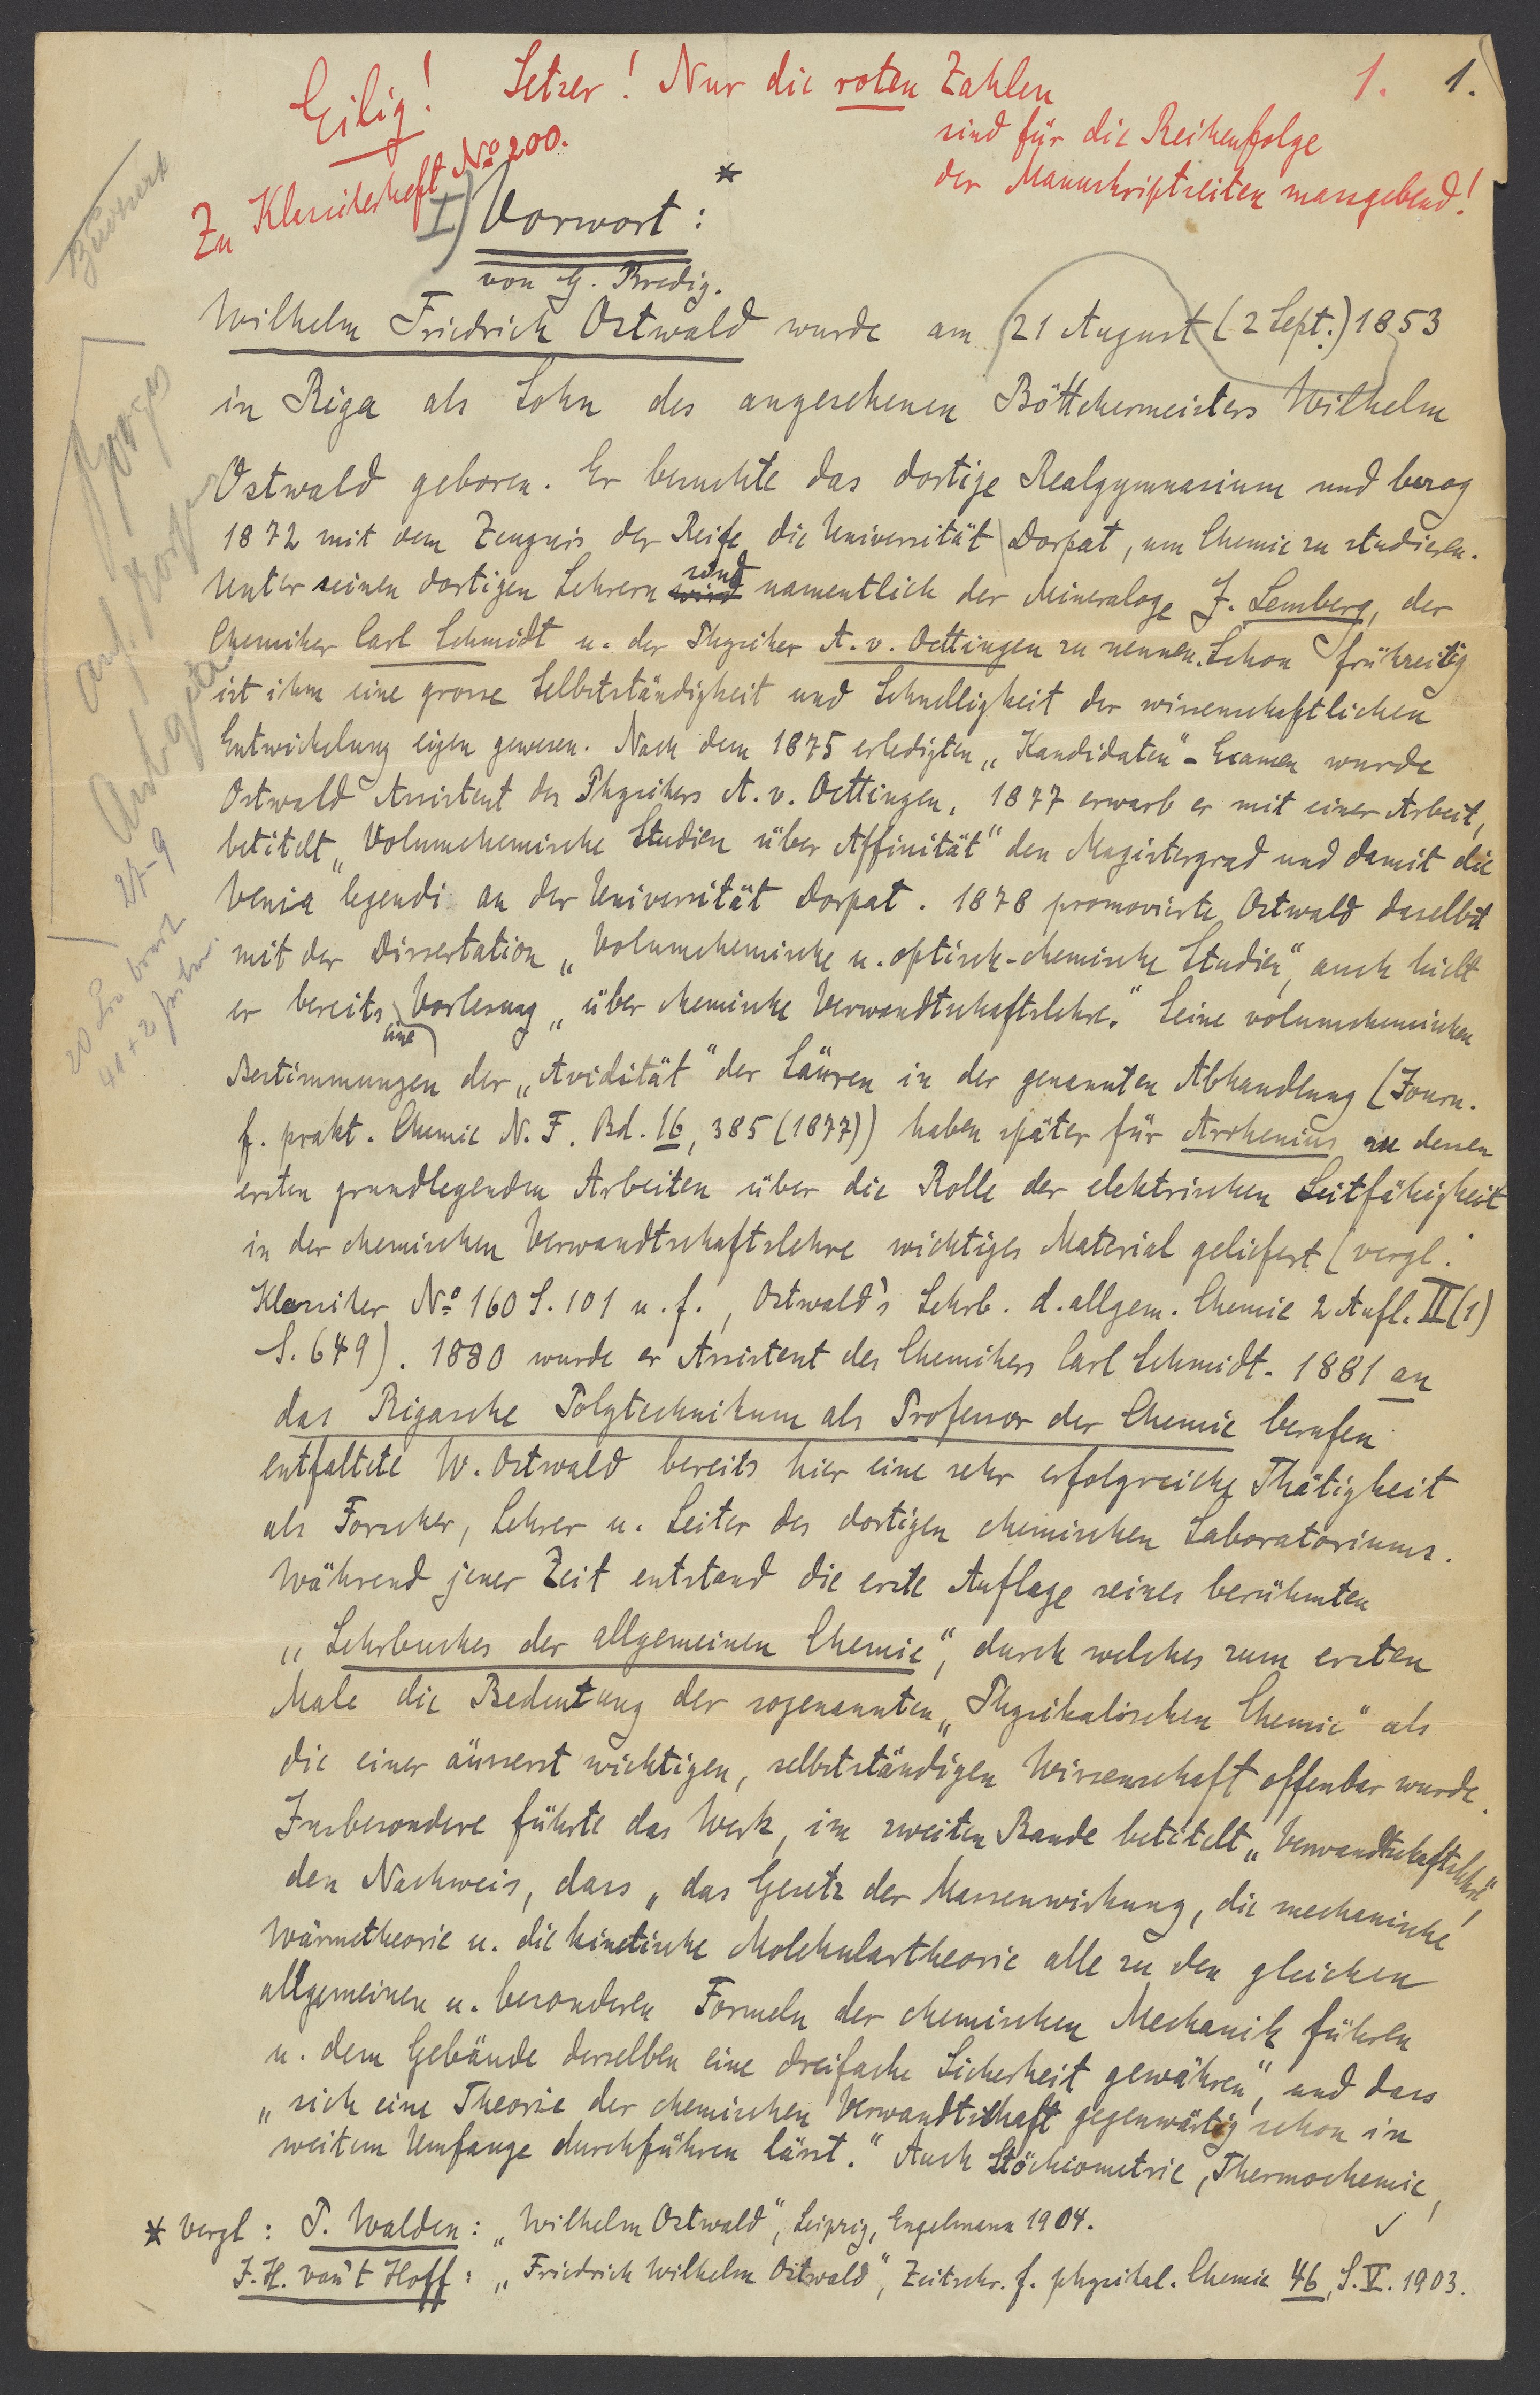 Eilig! Setzer! Nur die roten Zahlen 1. 1.
sind für die Reihenfolge
der Manuskriptseiten massgebend!
Zu Klassikerheft No 200.
I) Vorwort: *
von G. Bredig.
Wilhelm Friedrich Ostwald wurde am 21 August (2 Sept.) 1853
in Riga als Sohn des angesehenen Böttchermeisters Wilhelm
Ostwald geboren. Er besuchte das dortige Realgymnasium und bezog
1872 mit dem Zeugnis der Reife die Universität Dorpat, um Chemie zu studieren.
Unter seinen dortigen Lehrern wird sind namentlich der Mineraloge J. Lemberg, der
Chemiker Carl Schmidt u. der Physiker A. v. Oettingen zu nennen. Schon frühzeitig
ist ihm eine grosse Selbstständigheit und Schnelligkeit der wissenschaftlichen
Entwickelung eigen gewesen. Nach dem 1875 erledigten „Kandidaten"-Examen wurde
Ostwald Assistent des Physikers A. v. Oettingen, 1877 erwarb er mit einer Arbeit,
betitelt „Volumchemische Studien über Affinität" den Magistergrad und damit die
Venia legendi an der Universität Dorpat. 1878 promovierte Ostwald daselbst
mit der Dissertation „Volumchemische u. optisch-chemische Studien", auch hielt
er bereits eine Vorlesung „über chemische Verwandtschaftslehre." Seine volumchemischen
Bestimmungen der „Avidität" der Säuren in der genannten Abhandlung (Journ.
f. prakt. Chemie N. F. Bd. 16, 385 (1877)) haben später für Arrhenius zu dessen
ersten grundlegenden Arbeiten über die Rolle der elektrischen Leitfähigkeit
in der chemischen Verwandtschaftslehre wichtiges Material geliefert (vergl.
Klassiker No 160 S. 101 u. f., Ostwald's Lehrb. d. allgem. Chemie 2 Aufl. II (1)
S. 649). 1880 wurde er Assistent des Chemikers Carl Schmidt. 1881 an
das Rigasche Polytechnikum als Professor der Chemie berufen
entfaltete W. Ostwald bereits hier eine sehr erfolgreiche Thätigkeit
als Forscher, Lehrer u. Leiter des dortigen chemischen Laboratoriums.
Während jener Zeit entstand die erste Auflage seines berühmten
„Lehrbuches der allgemeinen Chemie", durch welches zum ersten
Male die Bedeutung der sogenannten „Physikalischen Chemie" als
die einer äusserst wichtigen, selbstständigen Wissenschaft offenbar wurde.
Insbesondere führte das Werk, im zweiten Bande betitelt „Verwandtschaftslehre",
den Nachweis, dass „das Gesetz der Massenwirkung, die mechanische
Wärmetheorie u. die kinetische Molekulartheorie alle zu den gleichen
allgemeinen u. besonderen Formeln der chemischen Mechanik führen
u. dem Gebäude derselben eine dreifache Sicherheit gewähren", und dass
„sich eine Theorie der chemischen Verwandtschaft gegenwärtig schon in
weitem Umfange durchführen lässt." Auch Stöchiometrie, Thermochemie,
* Vergl: P. Walden: „Wilhelm Ostwald", Leipzig, Engelmann 1904.
J. H. van't Hoff: „Friedrich Wilhelm Ostwald", Zeitschr. f. physikal. Chemie 46, S. V. 1903.